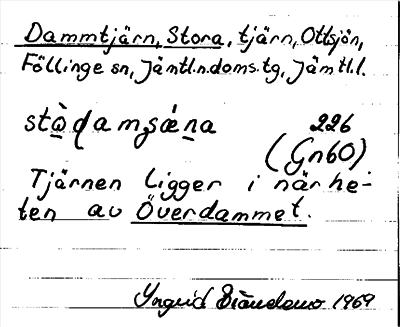 Dammtjärn, Stora, tjärn, Ottsjön,
Föllinge sn, Jämtl.n.doms.tg, Jämtl.l.
226
(Gn60)
Tjärnen ligger i närhe-
ten av Överdammet.
Yngvid 1969